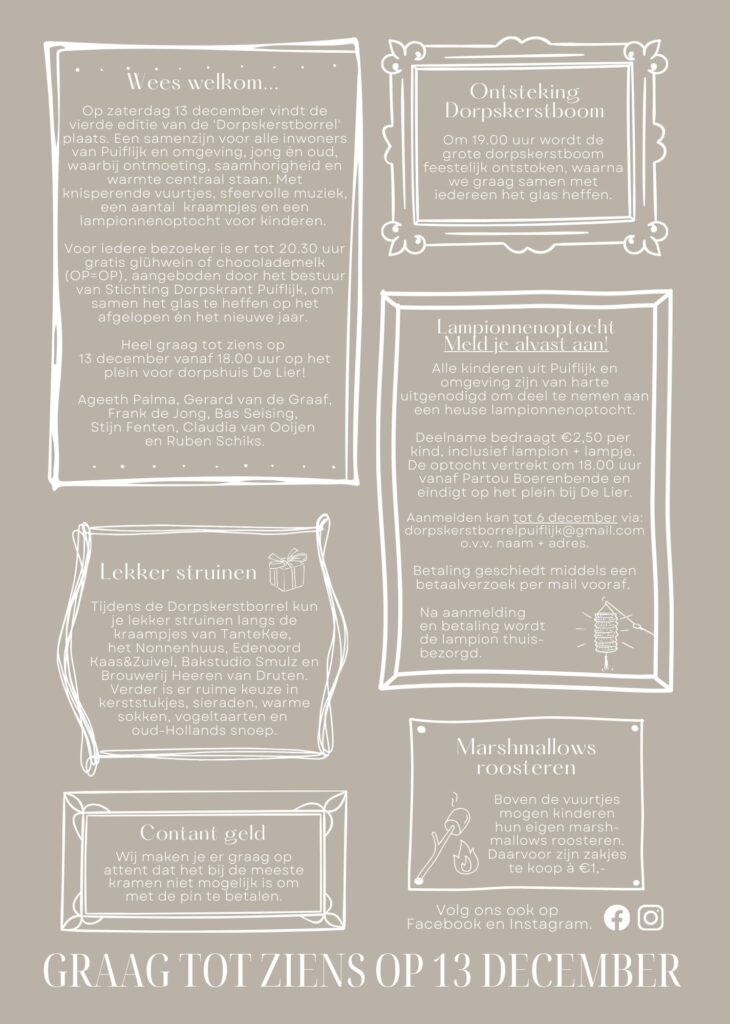 Wees welkom...
Op zaterdag 13 december vindt de
vierde editie van de 'Dorpskerstborrel'
plaats. Een samenzijn voor alle inwoners
van Puiflijk en omgeving, jong én oud,
waarbij ontmoeting, saamhorigheid en
warmte centraal staan. Met
knisperende vuurtjes, sfeervolle muziek,
een aantal kraampjes en een
lampionnenoptocht voor kinderen.
Voor iedere bezoeker is er tot 20.30 uur
gratis glühwein of chocolademelk
(OP=OP), aangeboden door het bestuur
van Stichting Dorpskrant Puiflijk, om
samen het glas te heffen op het
afgelopen én het nieuwe jaar.
Heel graag tot ziens op
13 december vanaf 18.00 uur op het
plein voor dorpshuis De Lier!
Ageeth Palma, Gerard van de Graaf,
Frank de Jong, Bas Seising,
Stijn Fenten, Claudia van Ooijen
en Ruben Schiks.
Ontsteking
Dorpskerstboom
Om 19.00 uur wordt de
grote dorpskerstboom
feestelijk ontstoken, waarna
we graag samen met
iedereen het glas heffen.
Lampionnenoptocht
Meld je alvast aan!
Alle kinderen uit Puiflijk en
omgeving zijn van harte
uitgenodigd om deel te nemen aan
een heuse lampionnenoptocht.
Deelname bedraagt €2,50 per
kind, inclusief lampion + lampje.
De optocht vertrekt om 18.00 uur
vanaf Partou Boerenbende en
eindigt op het plein bij De Lier.
Aanmelden kan tot 6 december via:
dorpskerstborrelpuiflijk@gmail.com
o.v.v. naam + adres.
Betaling geschiedt middels een
betaalverzoek per mail vooraf.
Na aanmelding
en betaling wordt
de lampion thuis-
bezorgd.
Lekker struinen
Tijdens de Dorpskerstborrel kun
je lekker struinen langs de
kraampjes van TanteKee,
het Nonnenhuis, Edenoord
Kaas&Zuivel, Bakstudio Smulz en
Brouwerij Heeren van Druten.
Verder is er ruime keuze in
kerststukjes, sieraden, warme
sokken, vogeltaarten en
oud-Hollands snoep.
Marshmallows
roosteren
Boven de vuurtjes
mogen kinderen
hun eigen marsh-
mallows roosteren.
Daarvoor zijn zakjes
te koop à €1,-
Contant geld
Wij maken je er graag op
attent dat het bij de meeste
kramen niet mogelijk is om
met de pin te betalen.
Volg ons ook op
Facebook en Instagram.
GRAAG TOT ZIENS OP 13 DECEMBER